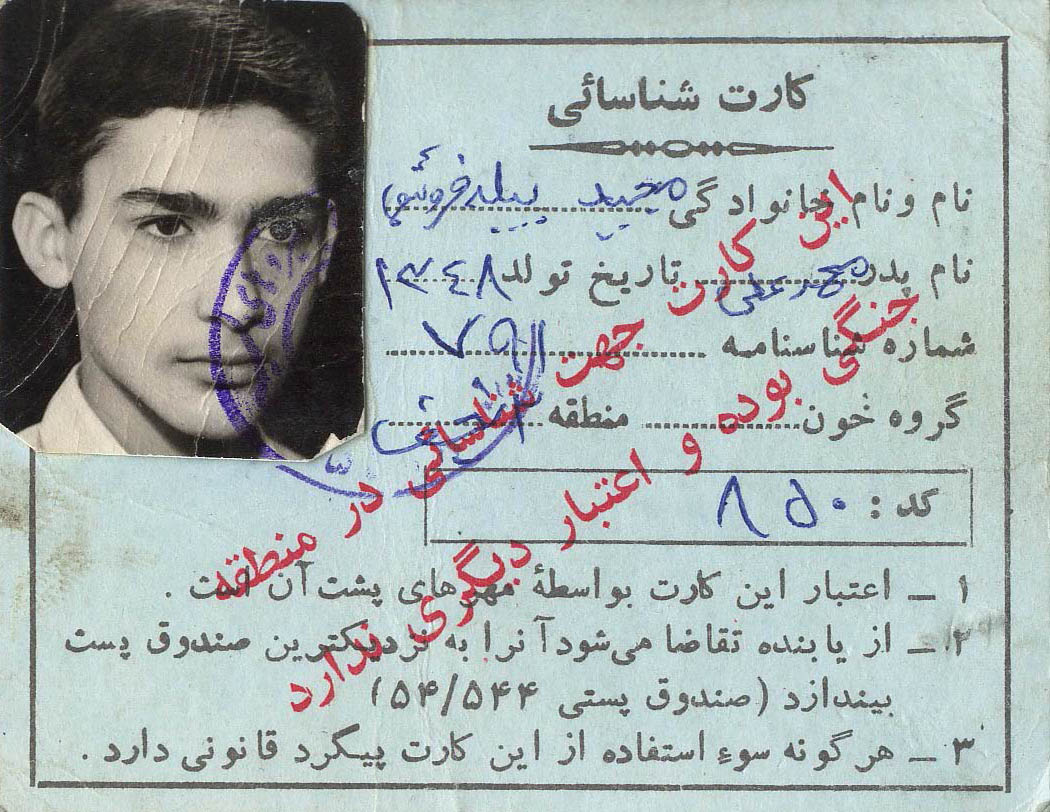 کارت شناسائی
نام و نام خانوادگی مجید پیله فروش
نام پدر محمد علی تاریخ تولد ۱۳۴۸
شماره شناسنامه ۷۹۱
گروه خون منطقه
کد : ۸۵۰
۱ ـ اعتبار این کارت بواسطهٔ مهرهای پشت آن است .
۲ ـ از یابنده تقاضا می‌شود آنرا به نزدیکترین صندوق پست
بیندازد (صندوق پستی ۵۴/۵۴۴)
۳ ـ هرگونه سوء استفاده از این کارت پیگرد قانونی دارد .
این کارت جهت شناسائی در منطقه
جنگی بوده و اعتبار دیگری ندارد